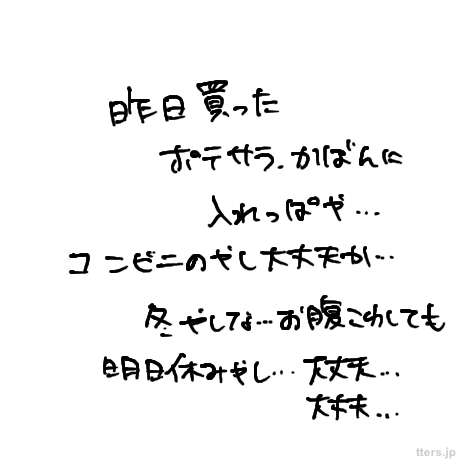 昨日買った
ポテサラ、かばんに
入れっぱや…
コンビニのやし大丈夫か…
冬やしな…お腹こわしても
明日休みやし…大丈夫…
大丈夫…
tters.jp